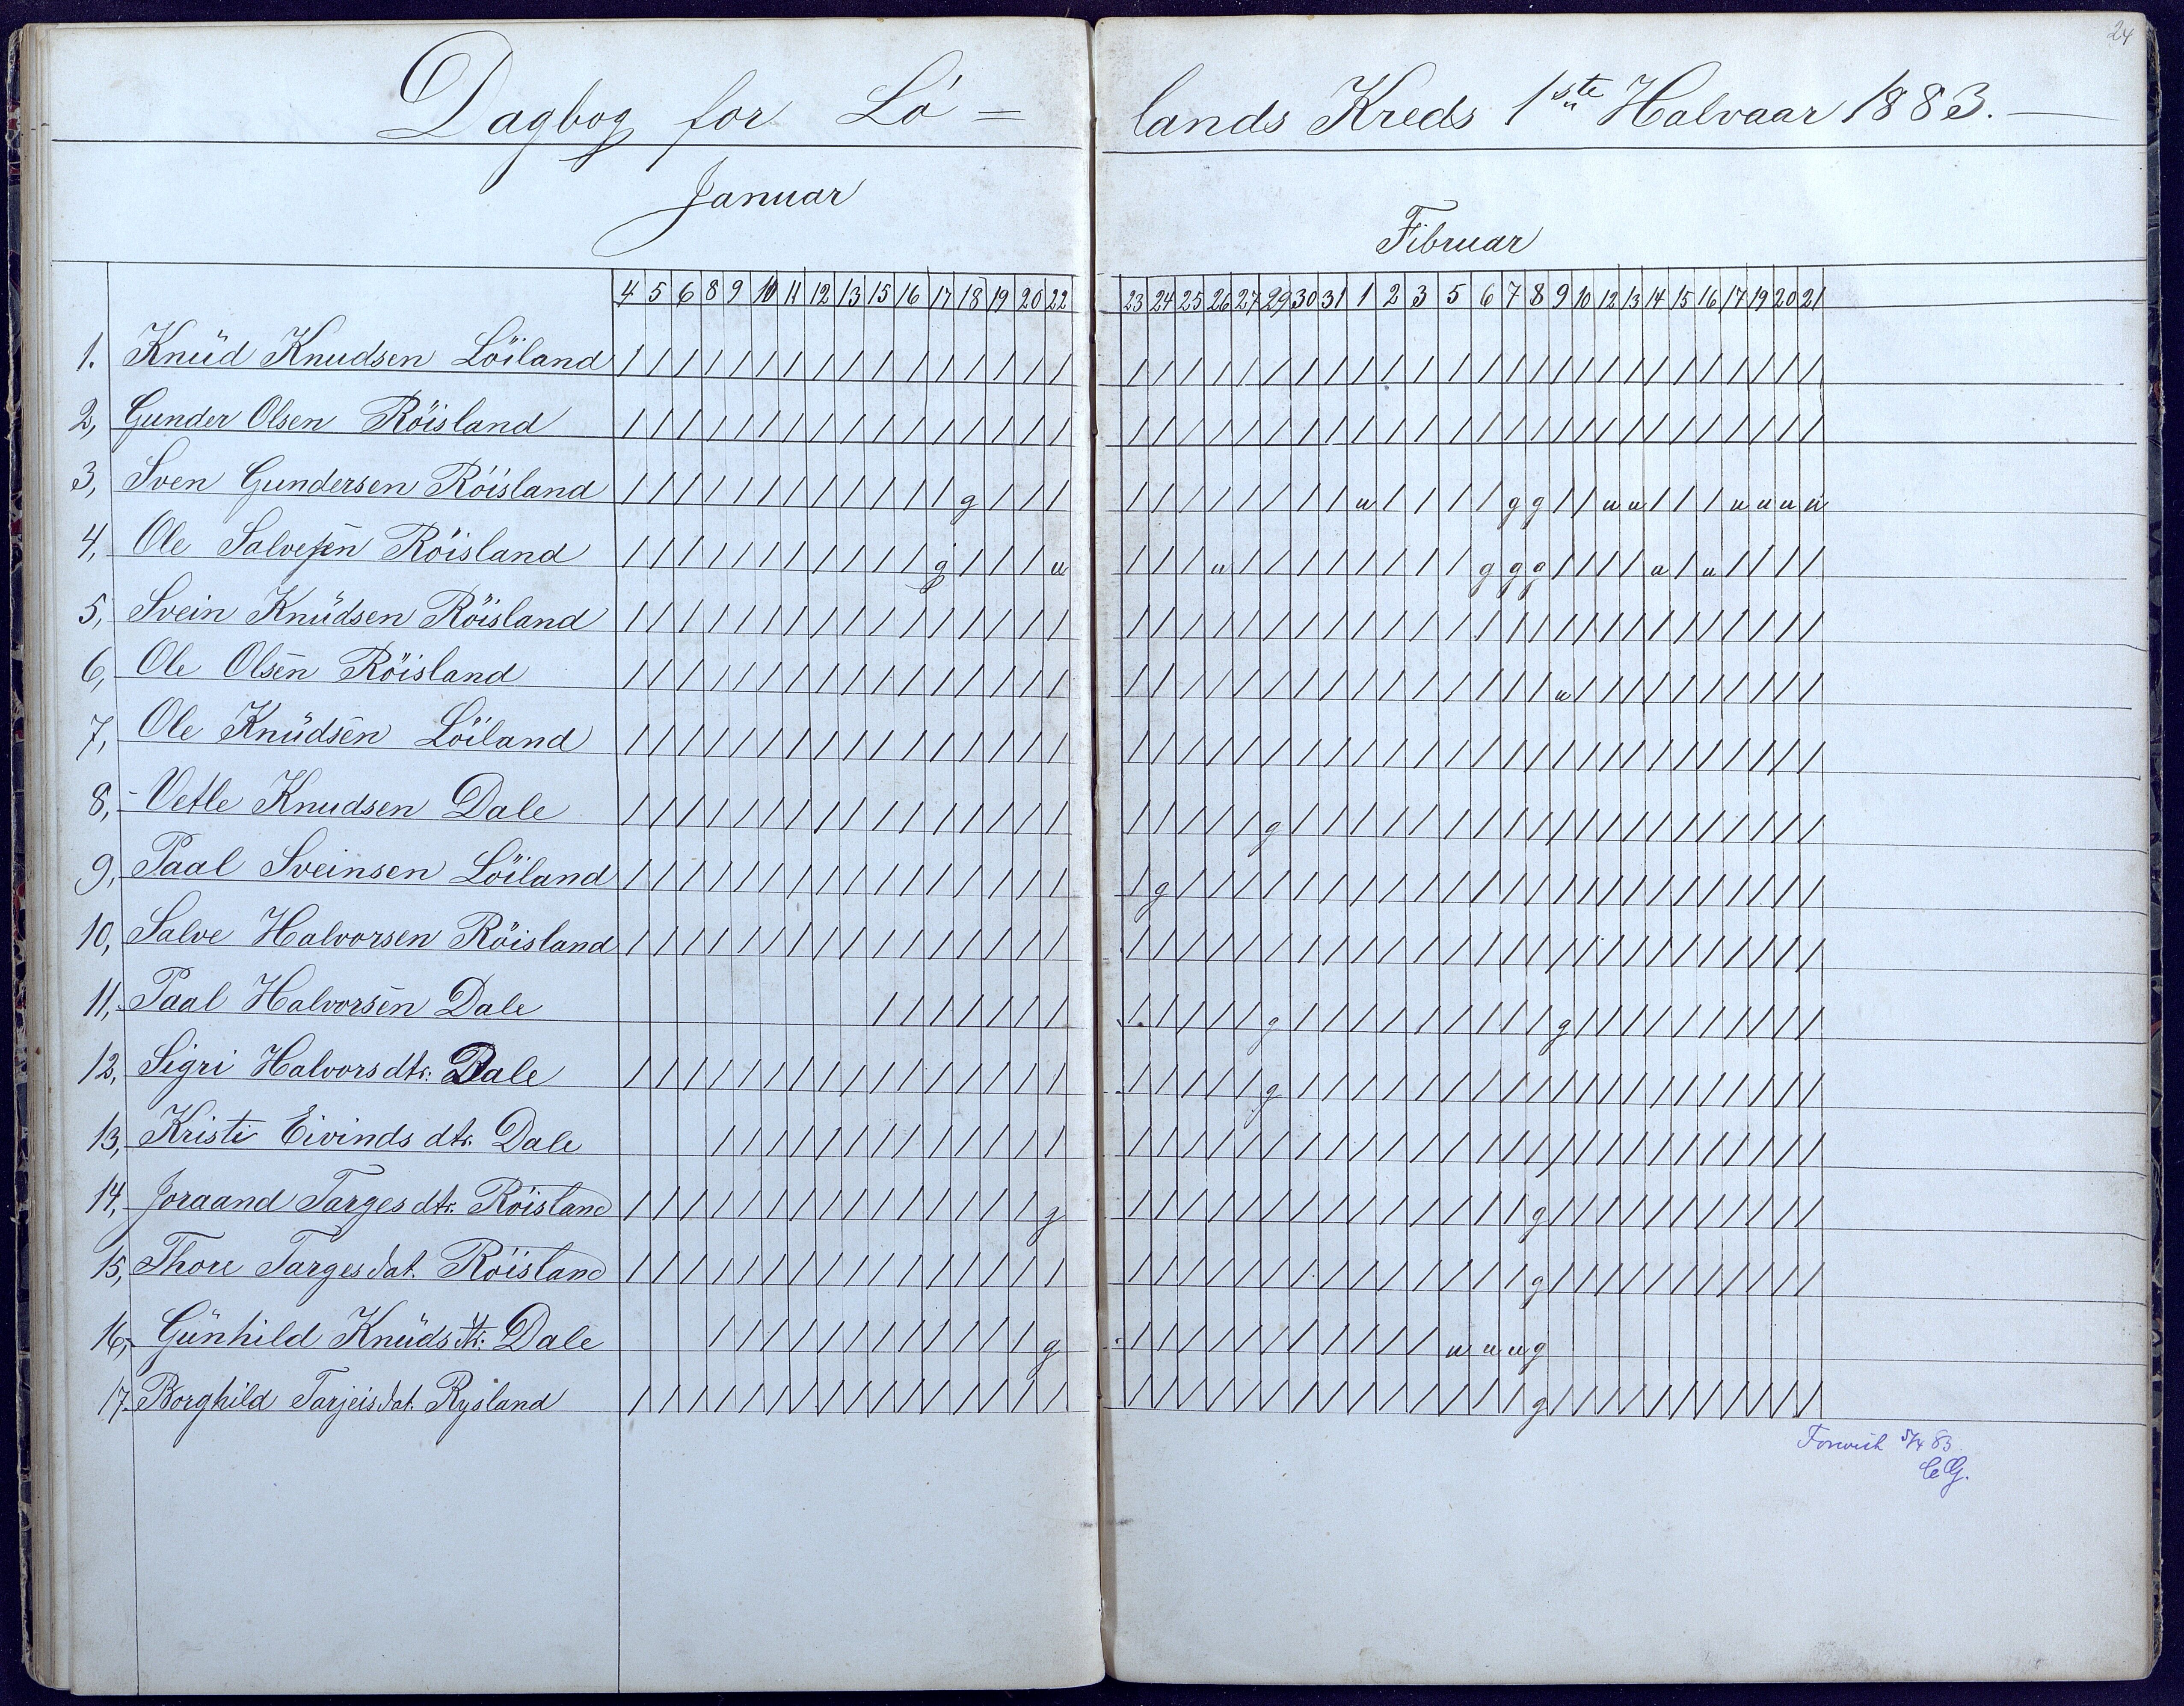 24
Dagbog for Lö = lands Kreds 1ste Halvaar 1883. —
Januar
Fibruar
4 5 6 8 9 10 11 12 13 15 16 17 18 19 20 22 23 24 25 26 27 29 30 31 1 2 3 5 6 7 8 9 10 12 13 14 15 16 17 19 20 21
1. Knŭd Knudsen Löiland / / / / / / / / / / / / / / / / / / / / / / / / / / / / / / / / / / / / / / / / / /
2, Gunder Olsen Röisland / / / / / / / / / / / / / / / / / / / / / / / / / / / / / / / / / / / / / / / / / /
3, Sven Gundersen Röisland / / / / / / / / / / / / g / / / / / / / / / / / u / / / / g g / / u u / / / u u u u
4, Ole Salvesen Röisland / / / / / / / / / / / g / / / u / / / u / / / / / / / / g g g / / / / u / u / / / /
5, Svein Knŭdsen Röisland / / / / / / / / / / / / / / / / / / / / / / / / / / / / / / / / / / / / / / / / / /
6, Ole Olsen Röisland / / / / / / / / / / / / / / / / / / / / / / / / / / / / / / / u / / / / / / / / / /
7, Ole Knŭdsen Löiland / / / / / / / / / / / / / / / / / / / / / / / / / / / / / / / / / / / / / / / / / /
8, Vetle Knudsen Dale / / / / / / / / / / / / / / / / / / / / / g / / / / / / / / / / / / / / / / / / / /
9, Paal Sveinsen Löiland / / / / / / / / / / / / / / / / / g / / / / / / / / / / / / / / / / / / / / / / / /
10, Salve Halvorsen Röisland / / / / / / / / / / / / / / / / / / / / / / / / / / / / / / / / / / / / / / / / / /
11, Paal Halvorsen Dale / / / / / / / / / / / / g / / / / / / / / / g / / / / / / / / / /
12, Sigri Halvorsdtr. Dale / / / / / / / / / / / / / / / / / / / / / g / / / / / / / / / / / / / / / / / / / /
13, Kristi Eivindsdtr. Dale / / / / / / / / / / / / / / / / / / / / / / / / / / / / / / / / / / / / / / /
14, Joraand Targesdtr. Röisland / / / / / / / / / / / / / / / g / / / / / / / / / / / / / / g / / / / / / / / / / /
15, Thore Targesdat. Röisland / / / / / / / / / / / / / / / / / / / / / / / / / / / / / / g / / / / / / / / / / /
16, Gŭnhild Knŭdsdtr. Dale / / / / / / / / / / / g / / / / / / / / / / / u u u g
17. Borghild Tarjeisdat. Rysland / / / / / / / / / / / / / / / / / / / / / / / / / / / / / / g / / / / / / / / / / /
5/4 83
CG.